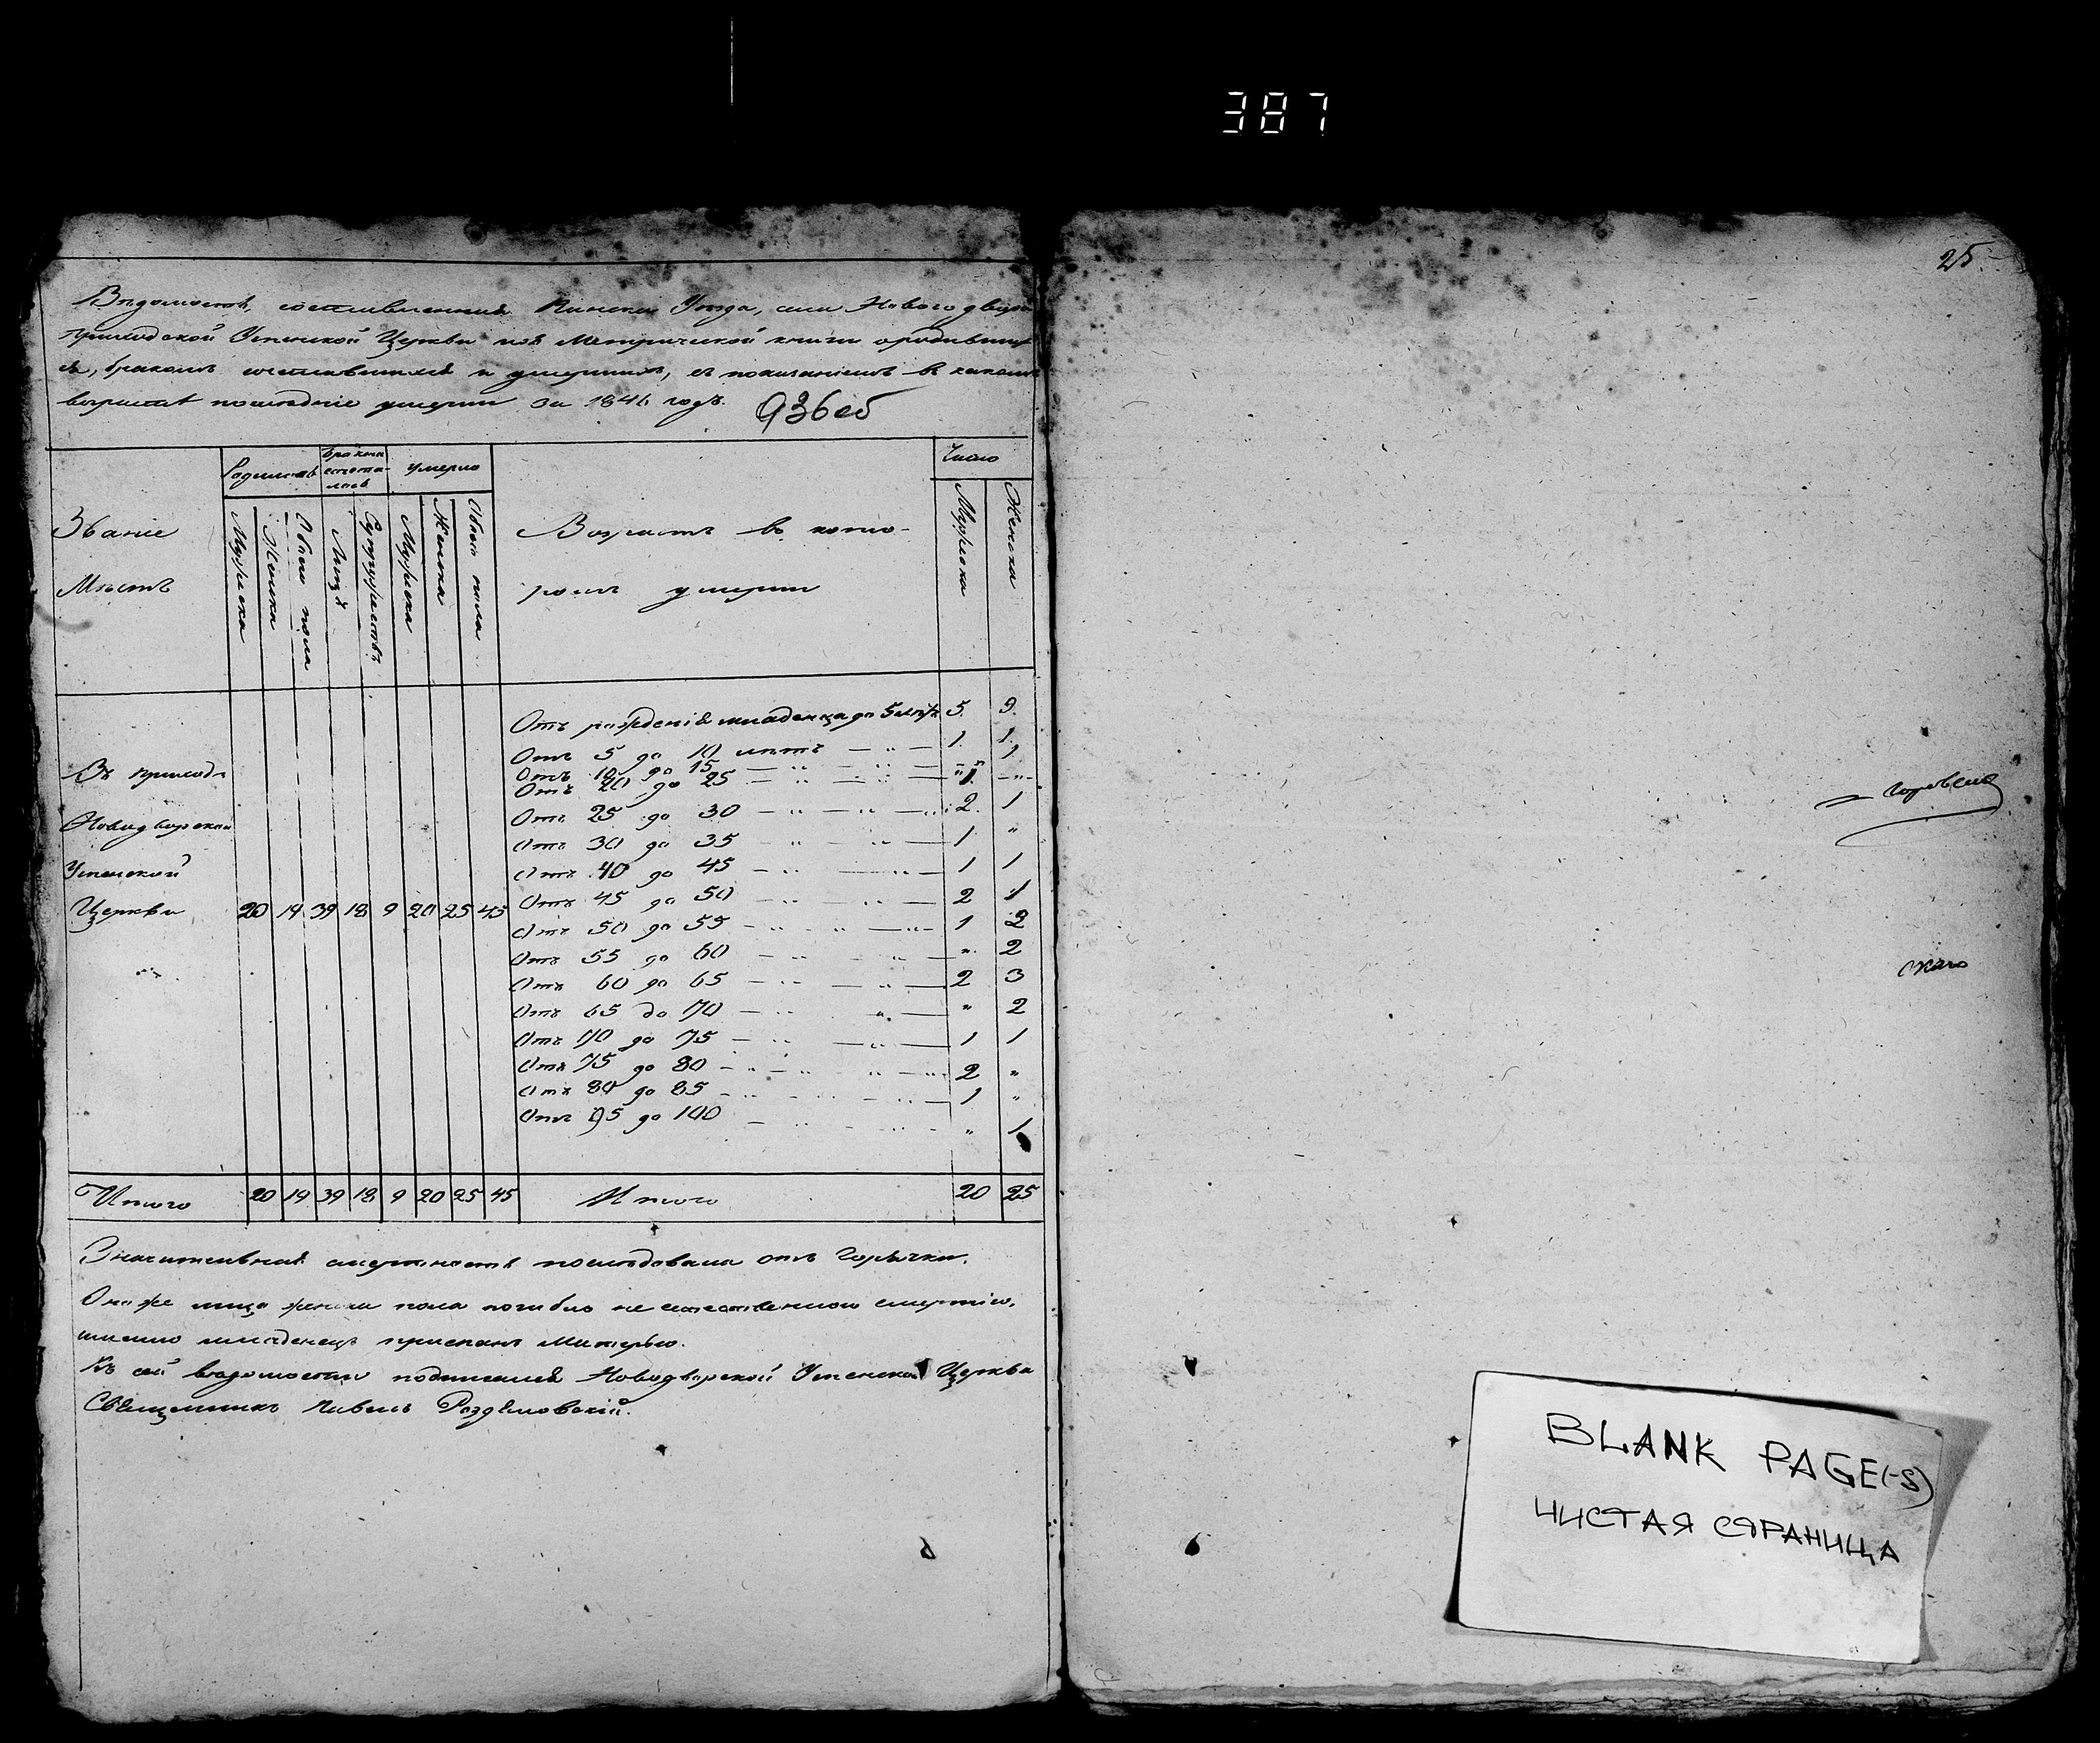 387
25
Вѣдомость, составленная Пинскаго Уѣзда, села Новаго двора
приходской Успенской Церкви изъ Метрической книги о родивших
ся, бракомъ сочетавшихся и умершихъ, съ показаніемъ въ какомъ
возрастѣ послѣдніе умерли за 1846 годъ. 936 об
Званіе Мѣстъ
Родилось
Бракомъ сочеталось
Умерло
Возрастъ въ кото-
ромъ умерли
Число
Мужеска Женска Обоего пола Лицъ Супружествъ Мужеска Женска Обоего пола
Мужеска Женска
Отъ рожденія младенца до 5 лѣтъ 5. 9.
Отъ 5 до 10 лѣтъ — „ — 1. 1.
Отъ 10 до 15 — „ — „ 1
Отъ 20 до 25 — „ — 1. „
Отъ 25 до 30 — „ — 2. 1
Отъ 30 до 35 — „ — 1 „
Отъ 40 до 45 — „ — 1 1
Отъ 45 до 50 — „ — 2 1
Отъ 50 до 55 — „ — 1 2
Отъ 55 до 60 — „ — „ 2
Отъ 60 до 65 — „ — 2 3
Отъ 65 до 70 — „ — „ 2
Отъ 70 до 75 — „ — 1 1
Отъ 75 до 80 — „ — 2 „
Отъ 80 до 85 — „ — 1 „
Отъ 95 до 100 — „ — „ 1
Въ приходѣ
Новодворской
Успенской
Церкви 20 19 39 18 9 20 25 45
Итого 20 19 39 18 9 20 25 45 Итого 20 25
Значительная смертность послѣдовала отъ Горячки.
Она же лица женска пола погибло не естественною смертію,
именно младенецъ приспанъ Матерью.
Къ сей вѣдомости подписался Новодворской Успенской Церкви
Священникъ Павелъ
скаго
BLANK PAGE(-S)
ЧИСТАЯ СТРАНИЦА